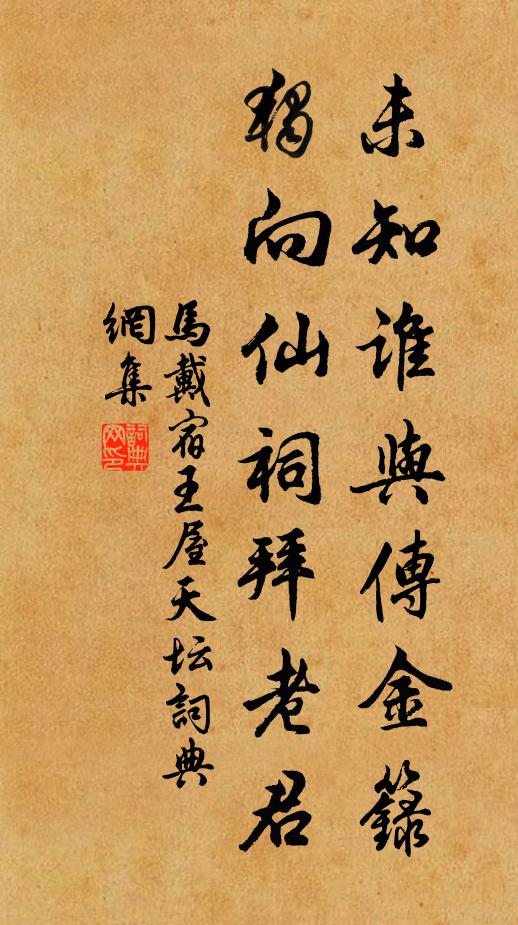 未知誰與傳金籙
獨向仙祠拜老君
馬戴宿王屋天坛詞典
網集
詞典
网印